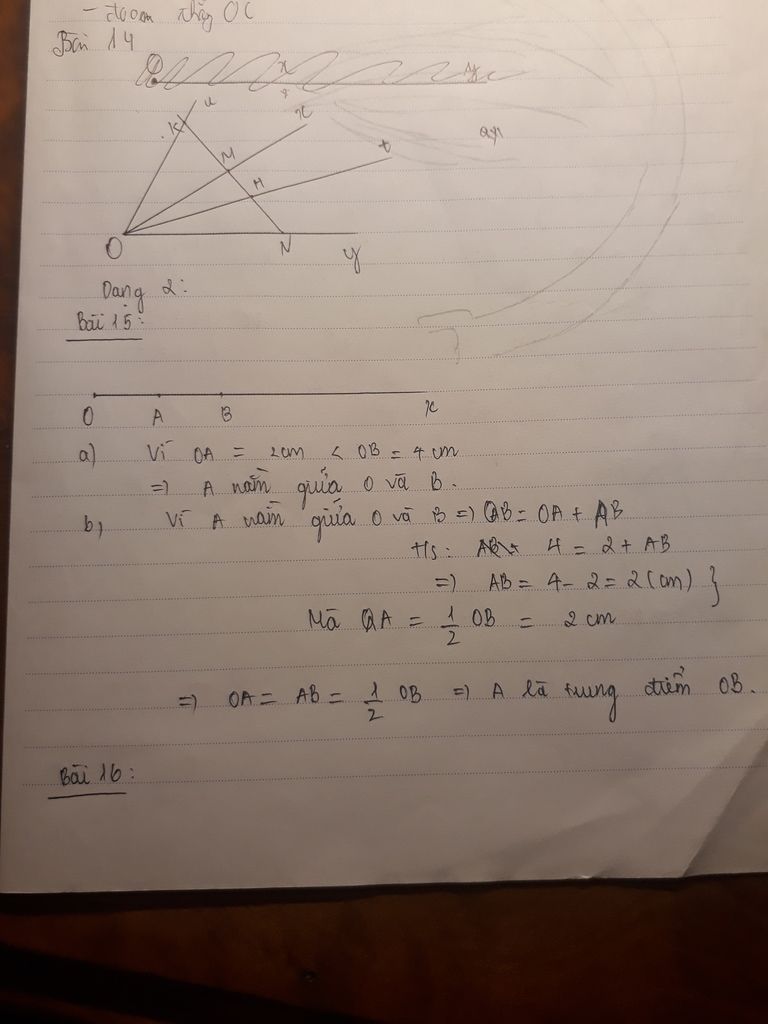 - đoạn thẳng OC
Bài 14
u
K
x
M
t
H
O
N
y
Dạng 2:
Bài 15:
O A B x
a) Vì OA = 2cm < OB = 4 cm
=> A nằm giữa O và B.
b, Vì A nằm giữa O và B => OB = OA + AB
4 = 2 + AB
=> AB = 4 - 2 = 2 (cm) }
Mà OA = 1/2 OB = 2 cm
=> OA = AB = 1/2 OB => A là trung điểm OB.
Bài 16: